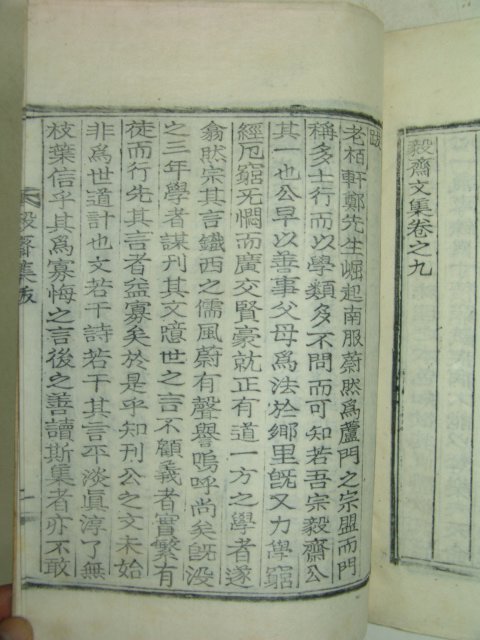 毅齋文集卷之九
跋
老栢軒鄭先生崛起南服蔚然爲蘆門之宗盟而門
稱多士行而以學類多不問而可知若吾宗毅齋公
其一也公早以善事父母爲法於鄕里旣又力學窮
經厄窮无憫而廣交賢豪就正有道一方之學者遂
翕然宗其言鐵西之儒風蔚有聲譽嗚呼尚矣旣沒
之三年學者謀刊其文噫世之言不顧義者實繁有
徒而行先其言者益寡矣於是乎知刊公之文未始
非爲世道計也文若干詩若干其言平淡眞淳了無
枝葉信乎其爲寡悔之言後之善讀斯集者亦不敢
毅齋集跋
一